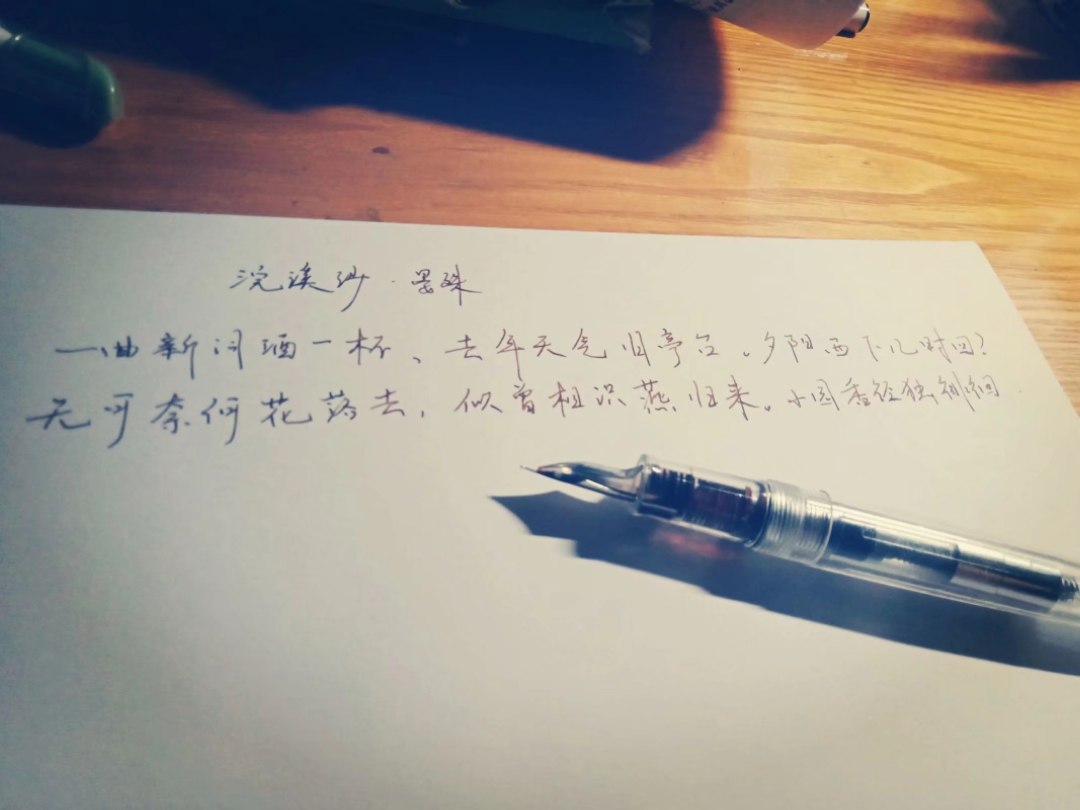 浣溪沙·晏殊
一曲新词酒一杯、去年天气旧亭台。夕阳西下几时回?
无可奈何花落去，似曾相识燕归来。小园香径独徘徊.